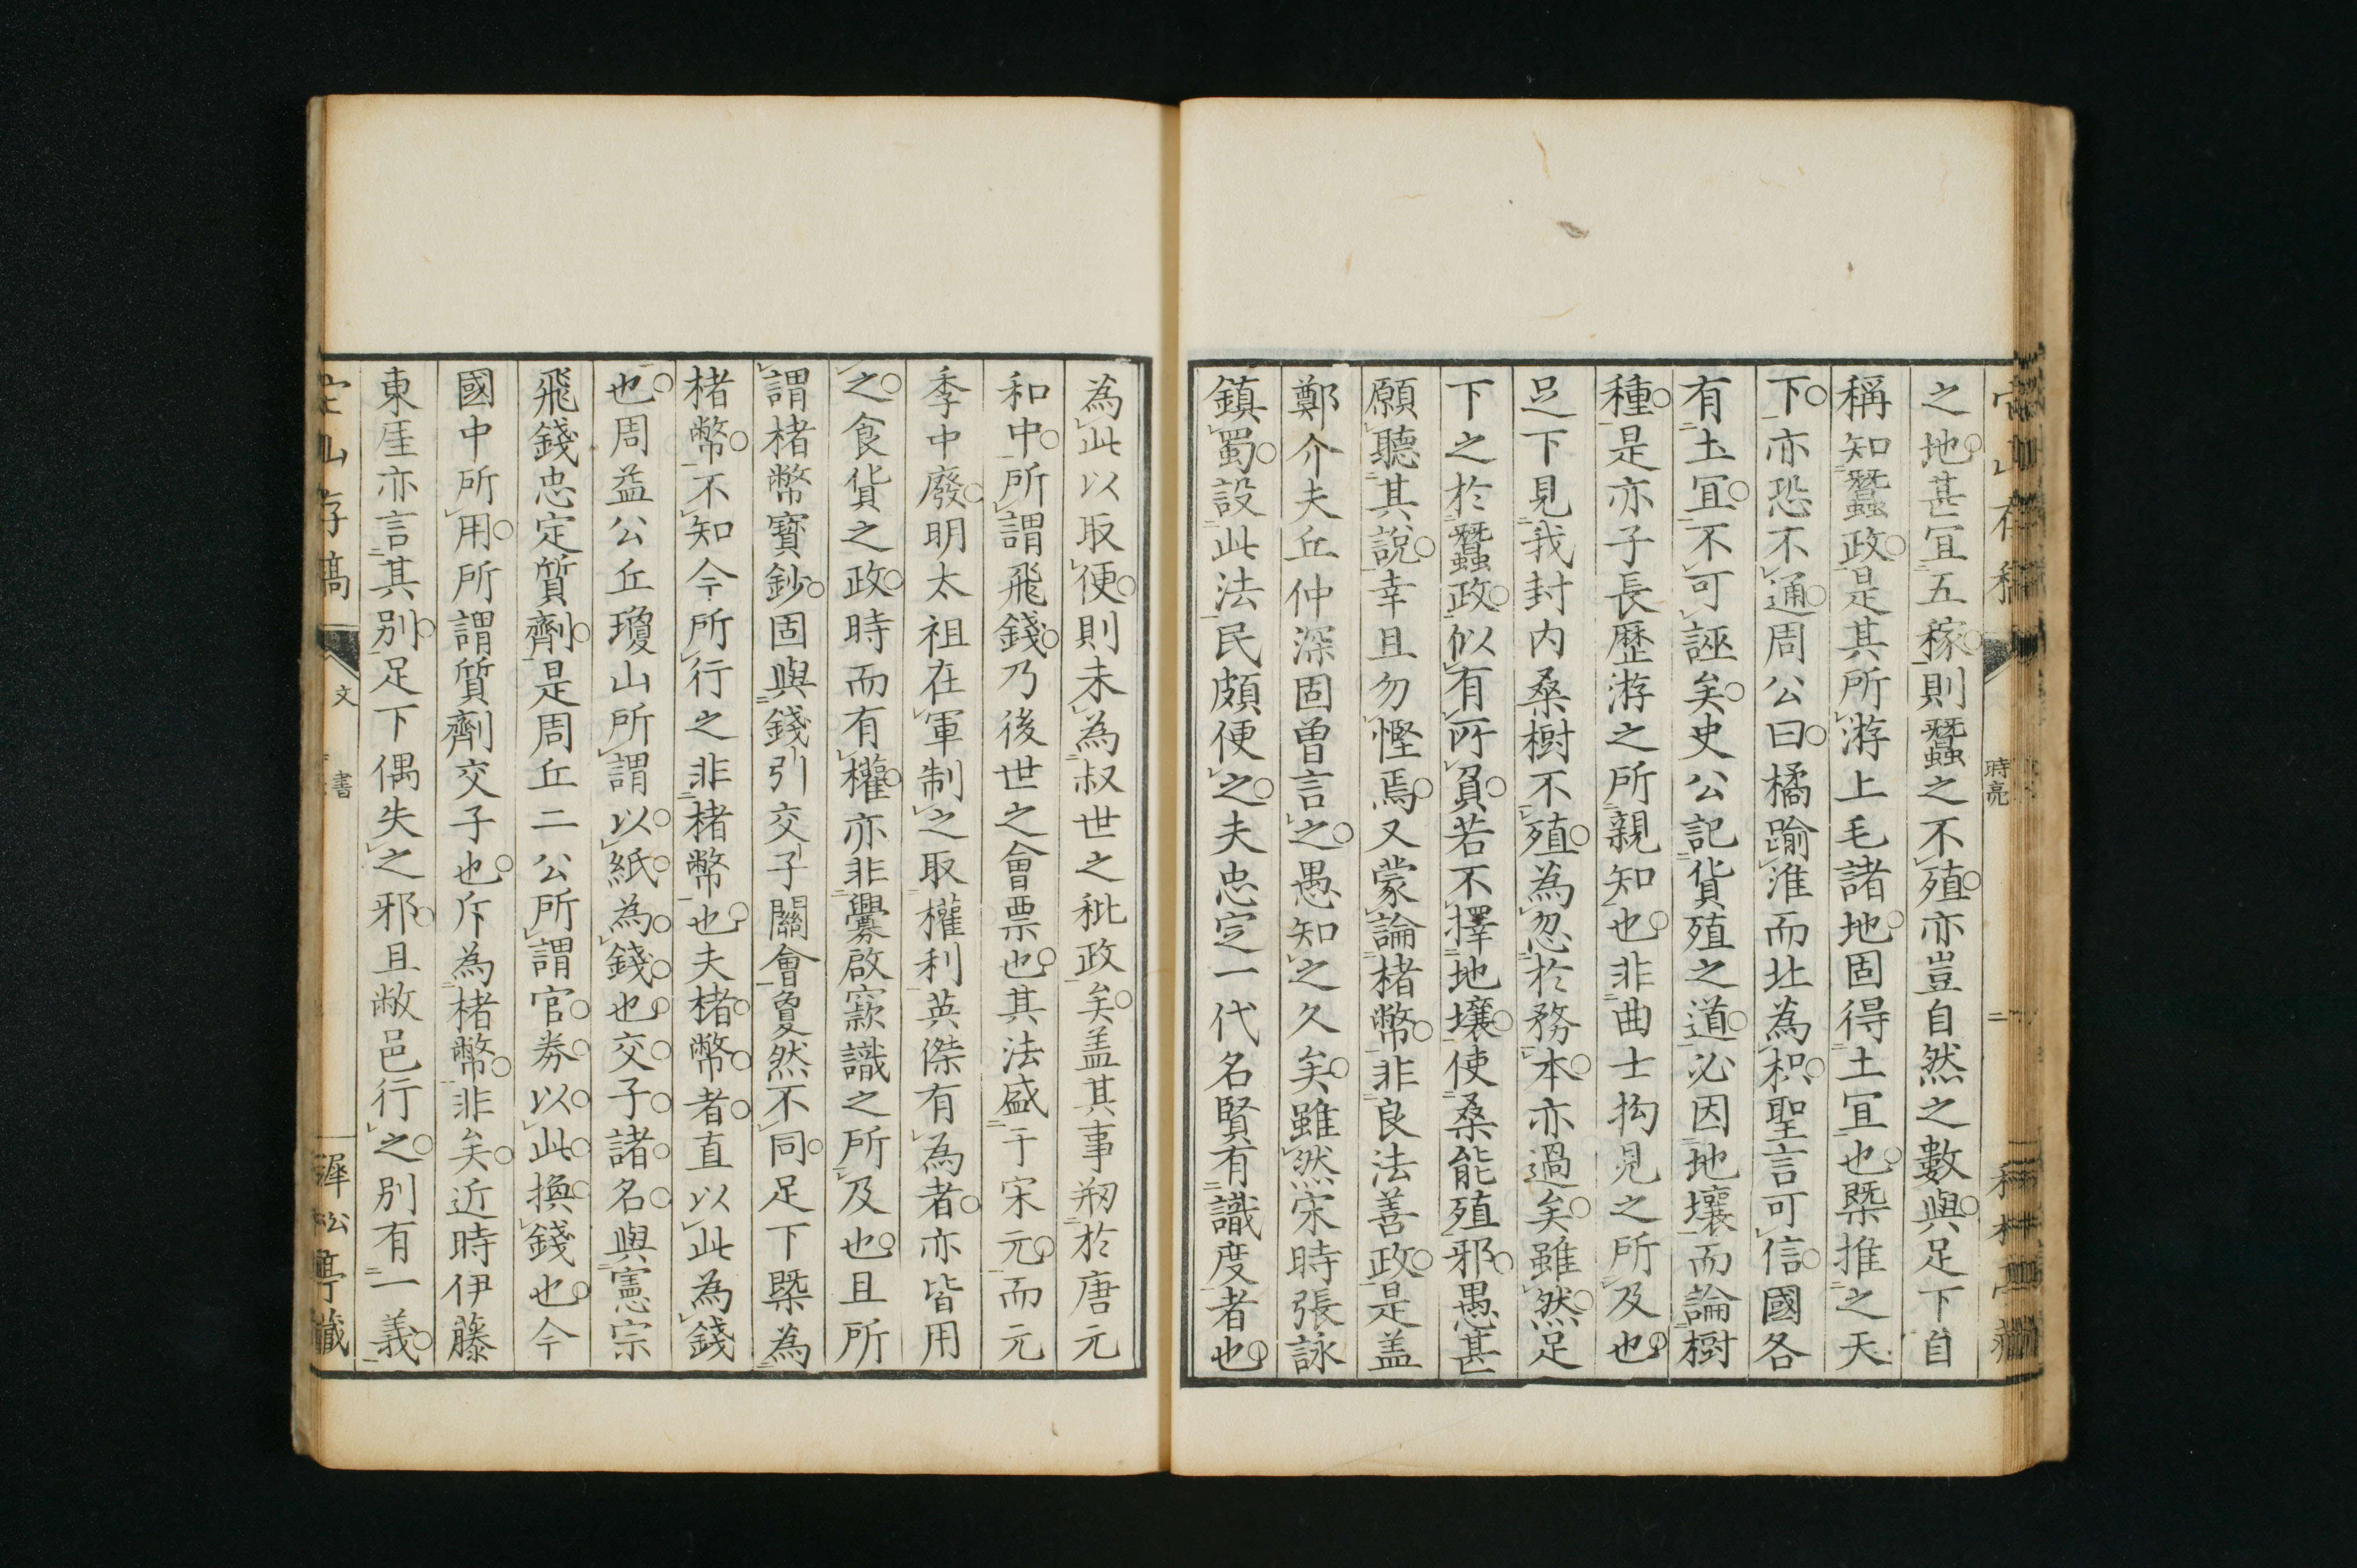 之地甚冝五稼則蠶之不殖亦豈自然之數與足下自
稱知蠶政是其所游上毛諸地固得土冝也槩推之天
下亦恐不通周公曰橘踰淮而北為枳聖言可信國各
有土冝不可誣矣史公記貨殖之道必因地壤而論樹
種是亦子長歷游之所親知也非曲士拘見之所及也
足下見我封内桑樹不殖為忽於務本亦過矣雖然足
下之於蠶政似有所負若不擇地壤使桑能殖邪愚甚
願聽其說幸且勿慳焉又蒙論楮幣非良法善政是盖
鄭介夫丘仲深固曾言之愚知之久矣雖然宋時張詠
鎮蜀設此法民頗便之夫忠定一代名賢有識度者也
為此以取便則未為叔世之秕政矣盖其事剏於唐元
和中所謂飛錢乃後世之會票也其法盛于宋元而元
季中廢明太祖在軍制之取權利英傑有為者亦皆用
之食貨之政時而有權亦非釁啟窾識之所及也且所
謂楮幣寳鈔固與錢引交子關會敻然不同足下槩為
楮幣不知今所行之非楮幣也夫楮幣者直以此為錢
也周益公丘瓊山所謂以紙為錢也交子諸名與憲宗
飛錢忠定質劑是周丘二公所謂官券以此換錢也今
國中所用所謂質劑交子也斥為楮幣非矣近時伊藤
東厓亦言其別足下偶失之邪且敝邑行之別有一義
山存稿
文
書
犀松亭藏